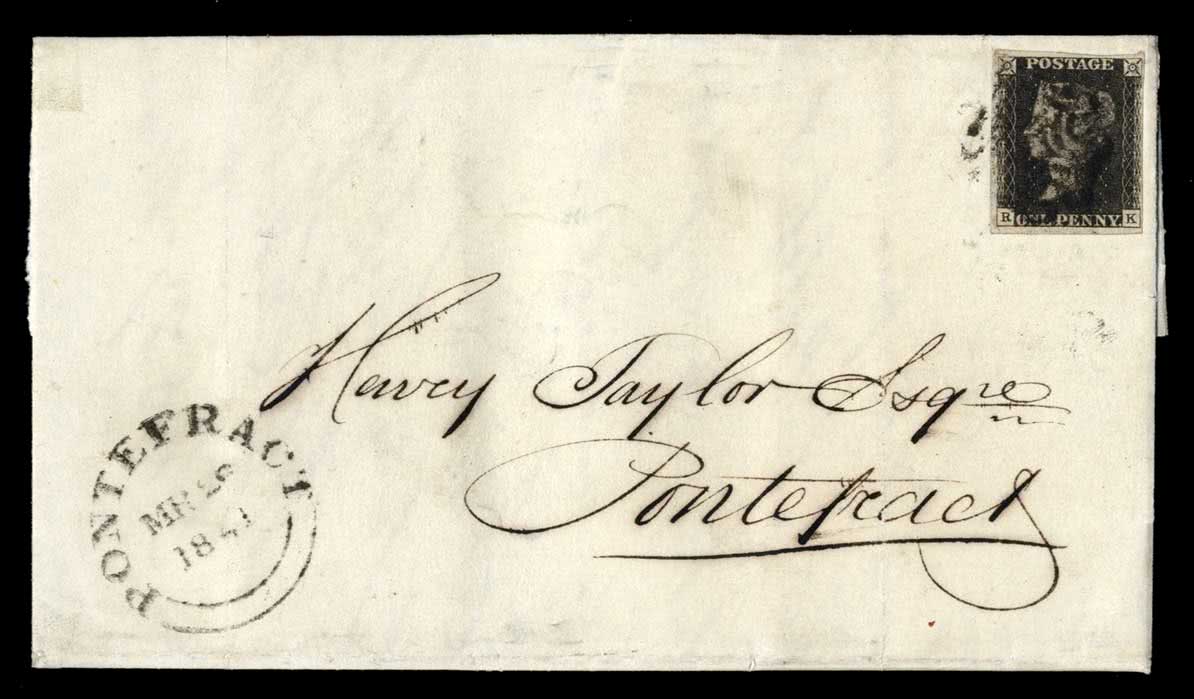 POSTAGE
R ONE PENNY. K
Henry Taylor Esqre
Pontefract
PONTEFRACT
MR 26
1841